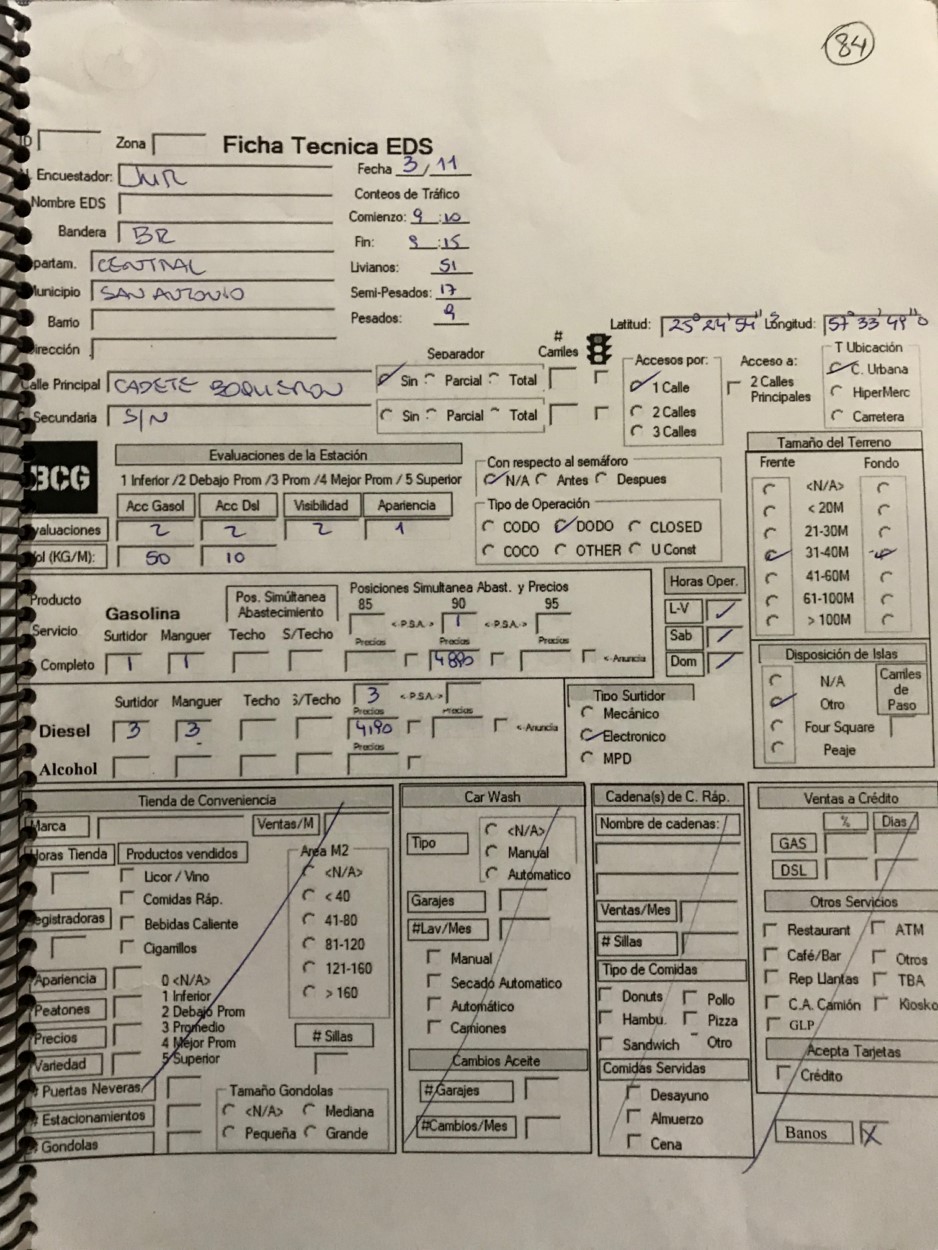 84
ID Zona Ficha Tecnica EDS
Encuestador: JMR Fecha 3/11
Nombre EDS Conteos de Tráfico
Bandera BR Comienzo: 9:10
Fin: 9:15
partam. CENTRAL Livianos: 51
Municipio SAN ANTONIO Semi-Pesados: 17
Barrio Pesados: 9
Latitud: 25° 24' 54" S Longitud: 57° 33' 49" O
Dirección
Separador # Carriles Accesos por: Acceso a: T Ubicación
Calle Principal CADETE BOQUERON Sin Parcial Total 1 Calle 2 Calles Principales C. Urbana
HiperMerc
Secundaria S/N Sin Parcial Total 2 Calles Carretera
3 Calles
BCG Evaluaciones de la Estación Con respecto al semáforo Tamaño del Terreno
1 Inferior /2 Debajo Prom /3 Prom /4 Mejor Prom / 5 Superior N/A Antes Despues Frente Fondo
Acc Gasol Acc Dsl Visibilidad Apariencia Tipo de Operación <N/A>
valuaciones 2 2 2 1 CODO DODO CLOSED < 20M
ol (KG/M): 50 10 COCO OTHER U Const 21-30M
31-40M
41-60M
61-100M
> 100M
Producto Gasolina Pos. Simúltanea Abastecimiento Posiciones Simultanea Abast. y Precios Horas Oper.
85 90 95 L-V
Servicio <-P.S.A.-> 1 <-P.S.A.-> Sab
Surtidor Manguer Techo S/Techo Precios Precios Precios Dom
Completo 1 1 4890 <-Anuncia
Disposición de Islas
N/A Carriles de Paso
Otro
Four Square
Peaje
Surtidor Manguer Techo S/Techo 3 <-P.S.A-> Tipo Surtidor
Precios Precios Mecánico
Diesel 3 3 4190 <-Anuncia Electronico
Precios
Alcohol MPD
Tienda de Conveniencia Car Wash Cadena(s) de C. Ráp. Ventas a Crédito
Marca Ventas/M Tipo <N/A> Nombre de cadenas: % Dias
Horas Tienda Productos vendidos Area M2 Manual GAS
Licor / Vino <N/A> Automatico DSL
Comidas Ráp. < 40 Garajes Otros Servicios
egistradoras Bebidas Caliente 41-80 #Lav/Mes Ventas/Mes Restaurant ATM
Cigarrillos 81-120 Manual # Sillas Café/Bar Otros
Apariencia 0 <N/A> 121-160 Secado Automatico Tipo de Comidas Rep Llantas TBA
1 Inferior > 160 Automático Donuts Pollo C.A. Camión Kiosko
Peatones 2 Debajo Prom Camiones Hambu. Pizza GLP
Precios 3 Promedio # Sillas Sandwich Otro Acepta Tarjetas
4 Mejor Prom Cambios Aceite Comidas Servidas Crédito
Variedad 5 Superior
# Puertas Neveras Tamaño Gondolas #Garajes Desayuno
# Estacionamientos <N/A> Mediana Almuerzo
Gondolas Pequeña Grande #Cambios/Mes Cena Banos X